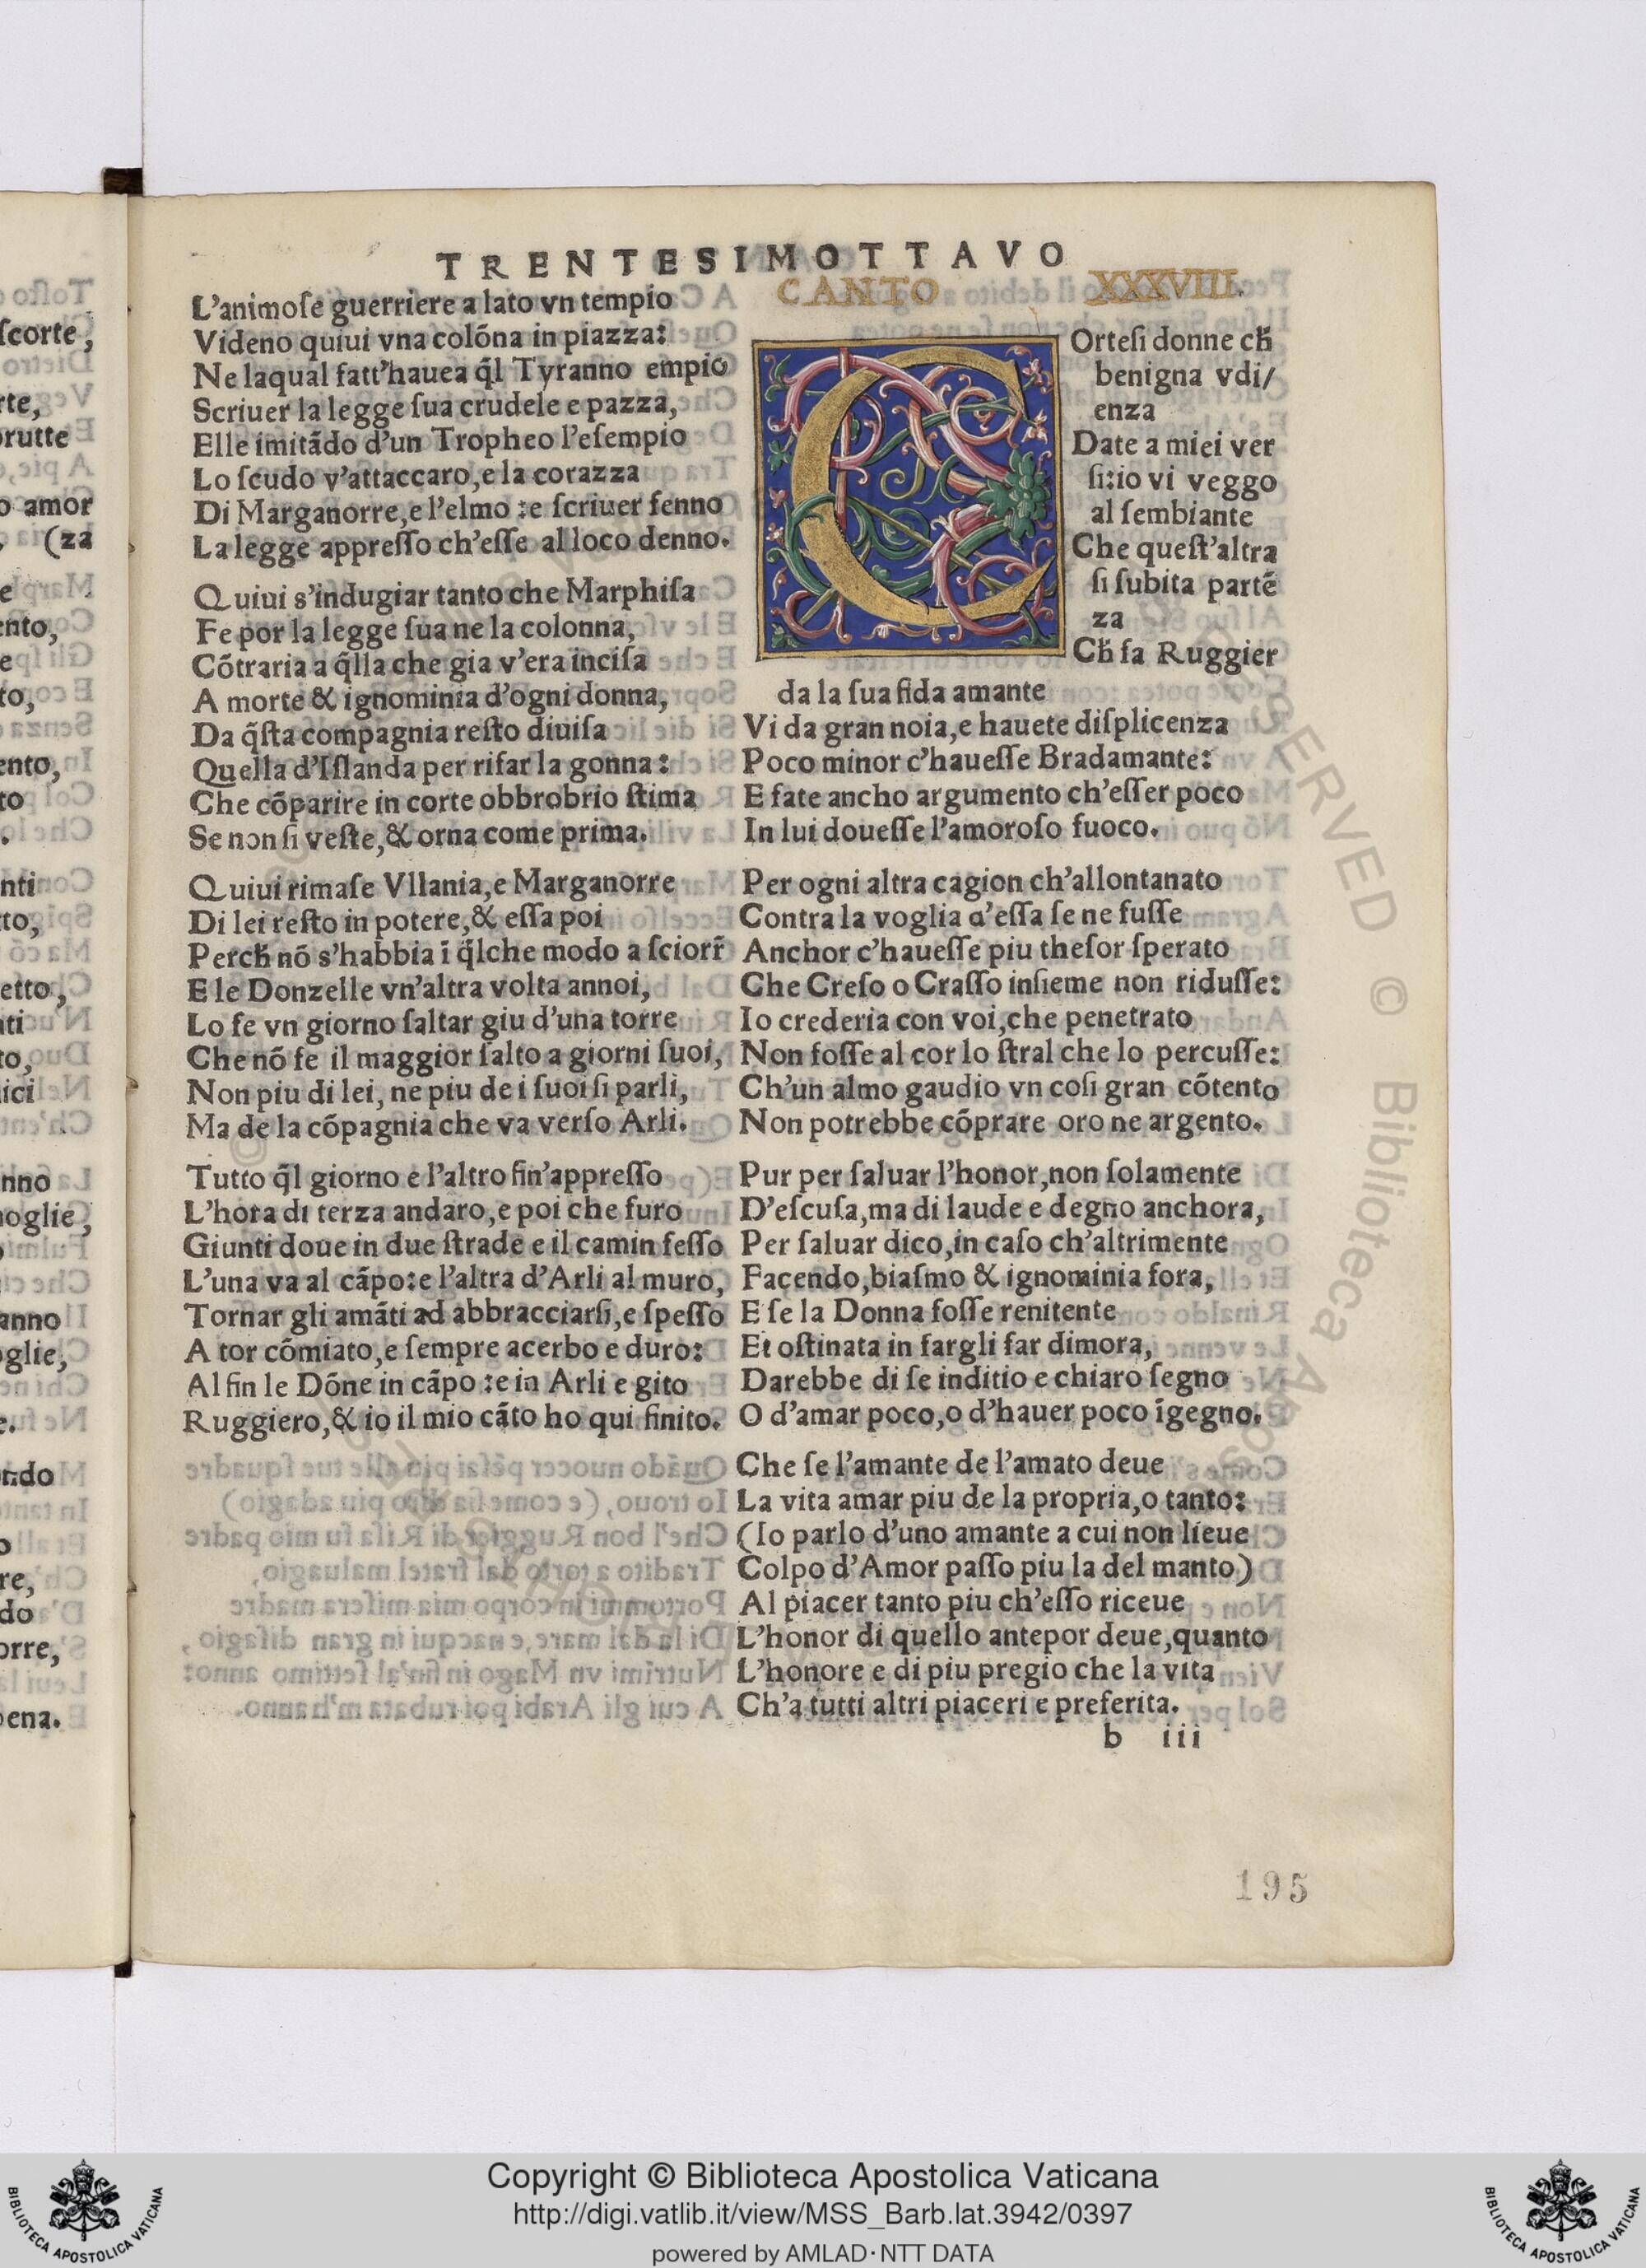 TRENTESIMOTTAVO
L'animoſe guerriere a lato vn tempio
Videno quiui vna colõna in piazza:
Ne laqual fatt'hauea q̃l Tyranno empio
Scriuer la legge ſua crudele e pazza,
Elle imitãdo d'un Tropheo l'eſempio
Lo ſcudo v'attaccaro,e la corazza
Di Marganorre,e l'elmo :e ſcriuer fenno
La legge appreſſo ch'eſſe al loco denno.
Quiui s'indugiar tanto che Marphiſa
Fe por la legge ſua ne la colonna,
Cõtraria a q̃lla che gia v'era inciſa
A morte & ignominia d'ogni donna,
Da q̃ſta compagnia reſto diuiſa
Quella d'Iſlanda per rifar la gonna:
Che cõparire in corte obbrobrio ſtima
Se non ſi veſte,& orna come prima.
Quiui rimaſe Vllania,e Marganorre
Di lei reſto in potere,& eſſa poi
Perch̃ nõ s'habbia ĩ q̃lche modo a ſciorr̃
E le Donzelle vn'altra volta annoi,
Lo fe vn giorno ſaltar giu d'una torre
Che nõ fe il maggior ſalto a giorni ſuoi,
Non piu di lei, ne piu de i ſuoi ſi parli,
Ma de la cõpagnia che va verſo Arli.
Tutto q̃l giorno e l'altro fin'appreſſo
L'hora di terza andaro,e poi che furo
Giunti doue in due ſtrade e il camin feſſo
L'una va al cãpo:e l'altra d'Arli al muro,
Tornar gli amãti ad abbracciarſi,e ſpeſſo
A tor cõmiato,e ſempre acerbo e duro:
Al fin le Dõne in cãpo :e in Arli e gito
Ruggiero,& io il mio cãto ho qui finito.
CANTO XXXVIII.
C
Orteſi donne ch̃
benigna vdi/
enza
Date a miei ver
ſi:io vi veggo
al ſembiante
Che queſt'altra
ſi ſubita partẽ
za
Ch̃ fa Ruggier
da la ſua fida amante
Vi da gran noia,e hauete diſplicenza
Poco minor c'haueſſe Bradamante:
E fate ancho argumento ch'eſſer poco
In lui doueſſe l'amoroſo fuoco.
Per ogni altra cagion ch'allontanato
Contra la voglia d'eſſa ſe ne fuſſe
Anchor c'haueſſe piu theſor ſperato
Che Creſo o Craſſo inſieme non riduſſe:
Io crederia con voi,che penetrato
Non foſſe al cor lo ſtral che lo percuſſe:
Ch'un almo gaudio vn coſi gran cõtento
Non potrebbe cõprare oro ne argento.
Pur per ſaluar l'honor,non ſolamente
D'eſcuſa,ma di laude e degno anchora,
Per ſaluar dico,in caſo ch'altrimente
Facendo,biaſmo & ignominia fora,
E ſe la Donna foſſe renitente
Et oſtinata in fargli far dimora,
Darebbe di ſe inditio e chiaro ſegno
O d'amar poco,o d'hauer poco ĩgegno.
Che ſe l'amante de l'amato deue
La vita amar piu de la propria,o tanto:
(Io parlo d'uno amante a cui non lieue
Colpo d'Amor paſſo piu la del manto)
Al piacer tanto piu ch'eſſo riceue
L'honor di quello antepor deue,quanto
L'honore e di piu pregio che la vita
Ch'a tutti altri piaceri e preferita.
b iii
195
Copyright © Biblioteca Apostolica Vaticana
http://digi.vatlib.it/view/MSS_Barb.lat.3942/0397
powered by AMLAD·NTT DATA
BIBLIOTECA APOSTOLICA VATICANA
BIBLIOTECA APOSTOLICA VATICANA